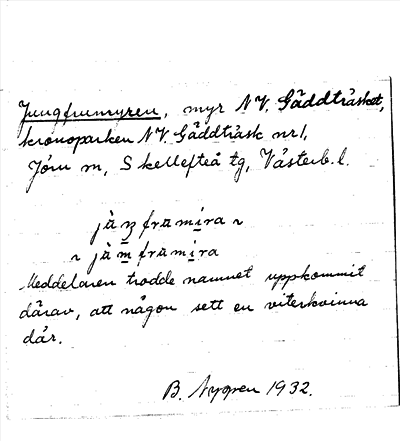 Jungfrumyren, myr NV. Gäddträsket,
kronoparken NV. Gäddträsk nr 1,
Jörn sn, Skellefteå tg, Västerb. l.
jàŋframira ~
~ jàmframira
Meddelaren trodde namnet uppkommit
därav, att någon sett en viterkvinna
där.
B. Nygren 1932.